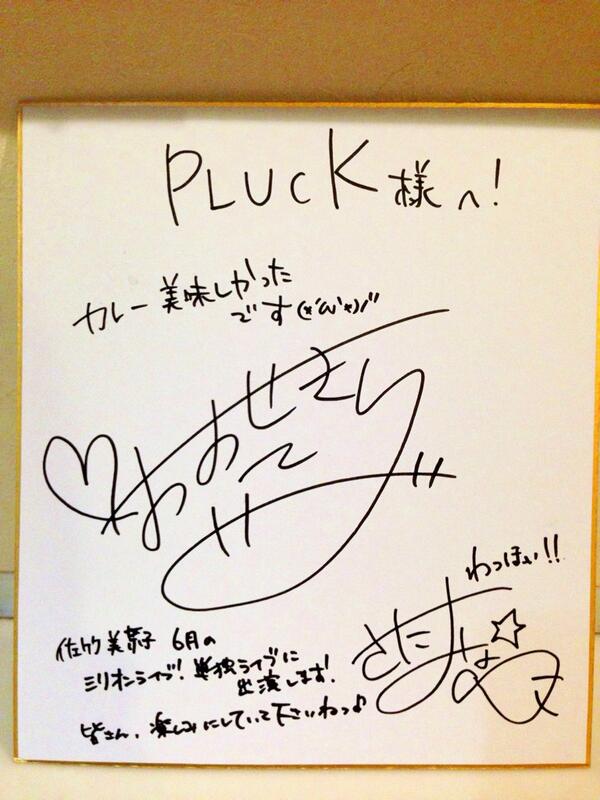 PLUCK 様へ!
カレー 美味しかった
です(*´ω`*)ﾉ"
わっほぃ!!
佐竹美奈子 6月の
ミリオンライブ!単独ライブに
出演します!
皆さん、楽しみにしていて下さいねっ♪